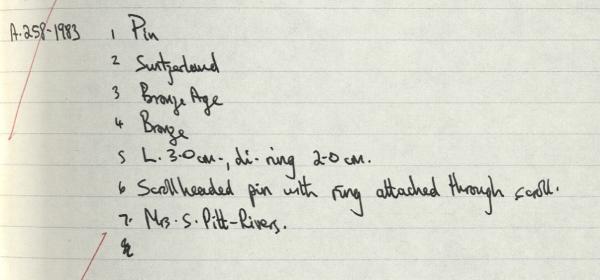 A.258-1983 1 Pin
2 Switzerland
3 Bronze Age
4 Bronze
5 L. 3.0 cm., di. ring 2.0 cm.
6 Scrollheaded pin with ring attached through scroll.
7. Mrs. S. Pitt-Rivers.